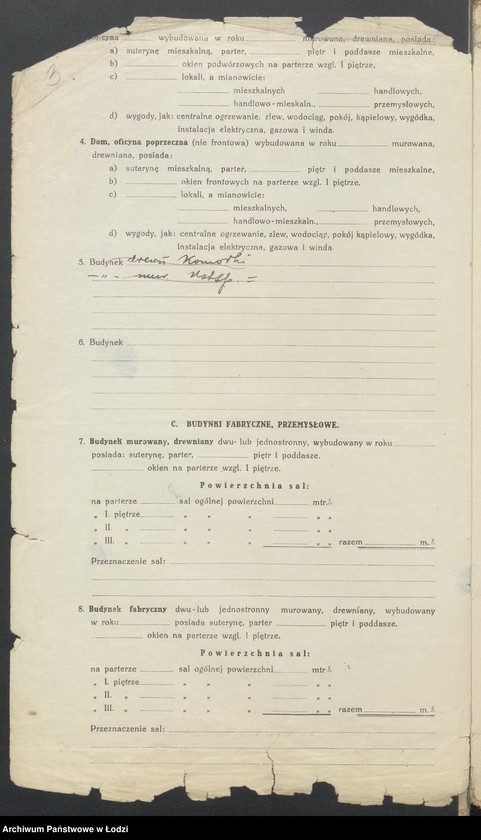 oficyna ______ wybudowana w roku ______ murowana, drewniana, posiada:
a) suterynę mieszkalną, parter, ______ piętr i poddasze mieszkalne,
b) ______ okien podwórzowych na parterze wzgl. I piętrze,
c) ______ lokali, a mianowicie:
______ mieszkalnych ______ handlowych,
______ handlowo-mieskaln., ______ przemysłowych,
d) wygody, jak: centralne ogrzewanie, zlew, wodociąg, pokój, kąpielowy, wygódka,
instalacja elektryczna, gazowa i winda.
4. Dom, oficyna poprzeczna (nie frontowa) wybudowana w roku ______ murowana,
drewniana, posiada:
a) suterynę mieszkalną, parter, ______ piętr i poddasze mieszkalne,
b) ______ okien frontowych na parterze wzgl. I piętrze,
c) ______ lokali, a mianowicie:
______ mieszkalnych, ______ handlowych,
______ handlowo-mieszkaln., ______ przemysłowych,
d) wygody, jak: centralne ogrzewanie, zlew, wodociąg, pokój kąpielowy, wygódka,
instalacja elektryczna, gazowa i winda.
5. Budynek drewn Komórki
— „ - mur. Ustęp =
6. Budynek
C. BUDYNKI FABRYCZNE, PRZEMYSŁOWE.
7. Budynek murowany, drewniany dwu- lub jednostronny, wybudowany w roku ______
posiada: suterynę, parter, ______ piętr i poddasze.
______ okien na parterze wzgl. I piętrze.
Powierzchnia sal:
na parterze ______ sal ogólnej powierzchni ______ mtr.²
„ I. piętrze ______ „ „ „ ______ „ „
„ II. „ ______ „ „ „ ______ „ „
„ III. „ ______ „ „ „ ______ „ „ razem ______ m.²
Przeznaczenie sal:
8. Budynek fabryczny dwu-lub jednostronny murowany, drewniany, wybudowany
w roku ______ posiada suterynę, parter ______ piętr i poddasze.
______ okien na parterze wzgl. I piętrze.
Powierzchnia sal:
na parterze ______ sal ogólnej powierzchni ______ mtr.²
„ I. piętrze ______ „ „ „ ______ „ „
„ II. „ ______ „ „ „ ______ „ „
„ III. „ ______ „ „ „ ______ „ „ razem ______ m.²
Przeznaczenie sal:
Archiwum Państwowe w Łodzi